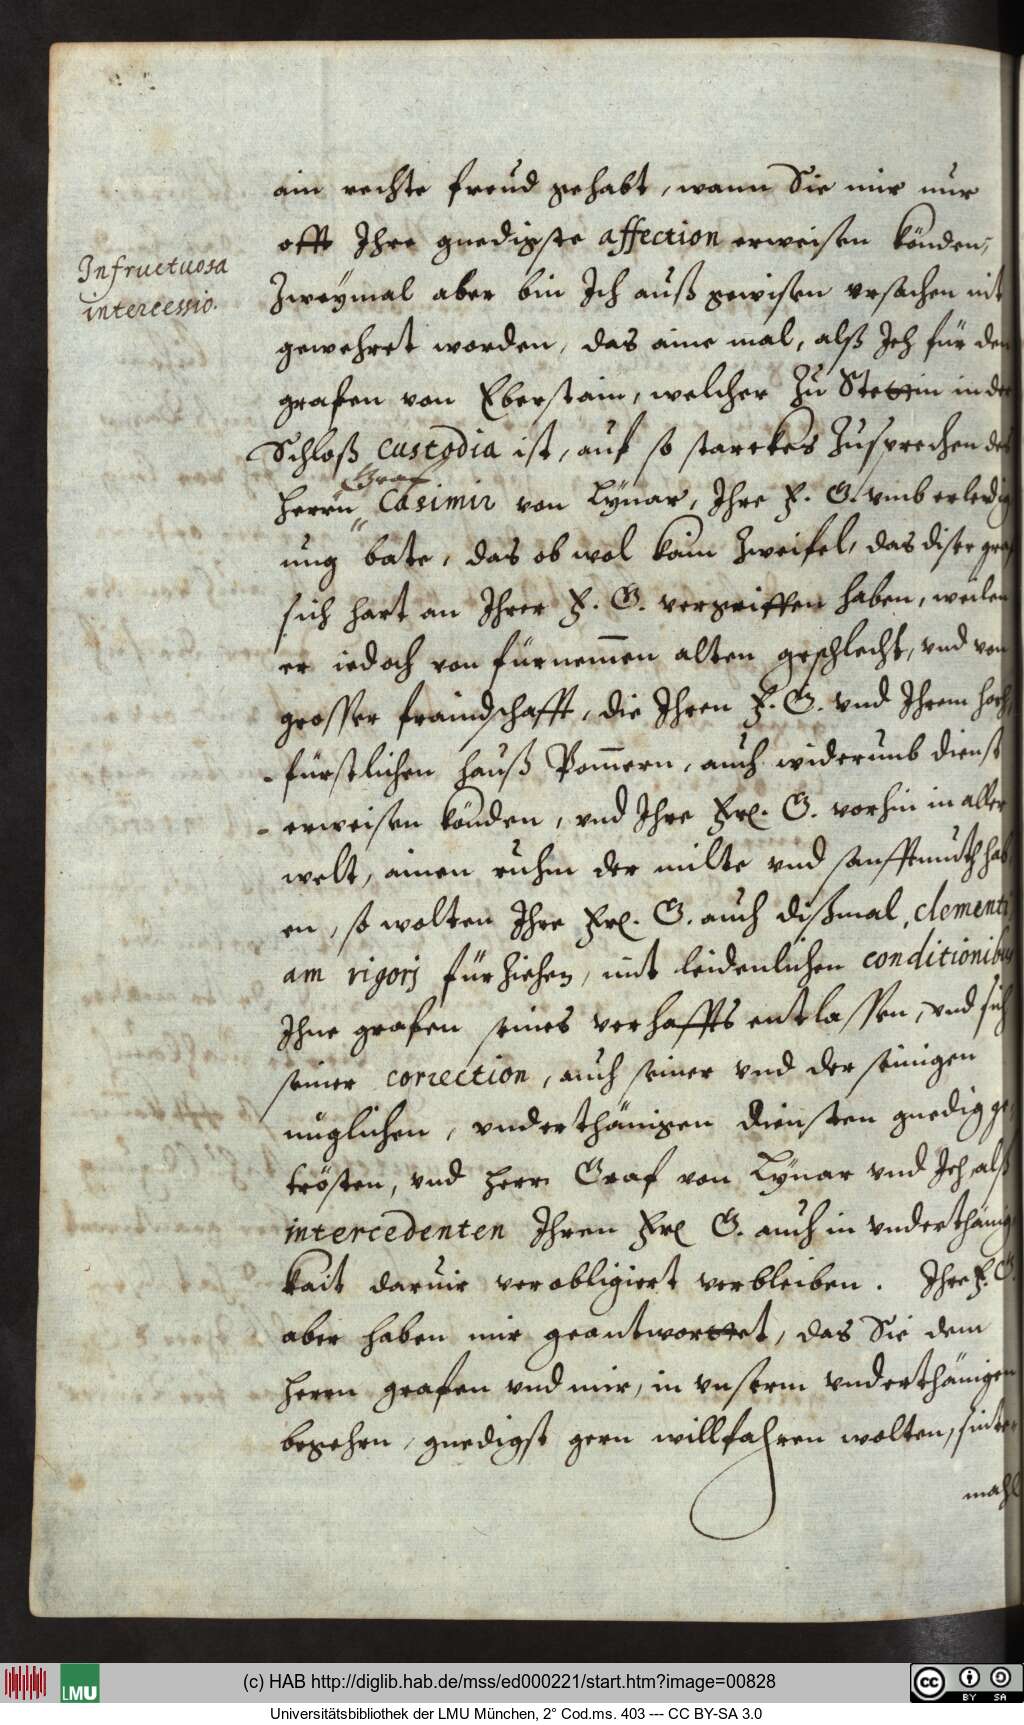 Infructuosa
intercessio.
ain rechte freud gehabt, wann Sie mir nur
offt Ihre gnedigste affection erweisen könden,
Zweÿmal aber bin Ich auß gewisen vrsachen nit
gewehret worden, das aine mal, alß Ich für den
grafen von Eberstain, welcher Zu Stettin in der
Schloß custodia ist, auf so starckes Zusprechen des
Graf
herrn Casimir von Lÿnar, Ihre F. G. vmb erledig
ung bate, das ob wol kain Zweifel, das diser graf
sich hart an Ihrer F. G. vergriffen haben, weilen
er iedoch von fürnem̄en alten geschlecht, vnd von
grosser fraindschafft, die Ihren F. G. vnd Ihrem hoch
fürstlichen hauß Pom̄ern, auch widerumb dienst
erweisen könden, vnd Ihre Frl. G. vorhin in aller
welt, ainen ruhm der milte vnd sanfftmuth hab
en, so wolten Ihre Frl. G. auch dißmal, clementi
am rigorj fürziehen, mit leidenlichen conditionibus
Ihne grafen seines verhaffts entlassen, vnd sich
seiner correction, auch seiner vnd der seinigen
müglichen, vnderthänigen diensten gnedig ge
trösten, vnd herr Graf von Lÿnar vnd Ich, alß
intercedenten Ihren Frl G. auch in vnderthänig
kait darvir verobligiert verbleiben. Ihre F. G.
aber haben mir geantworttet, das Sie dem
herrn grafen vnd mir, in vnserm vnderthänigen
begehrn, gnedigst gern willfahren wolten, sinte
mahl
(c) HAB http://diglib.hab.de/mss/ed000221/start.htm?image=00828
Universitätsbibliothek der LMU München, 2° Cod.ms. 403 --- CC BY-SA 3.0
LMU
cc
BY SA